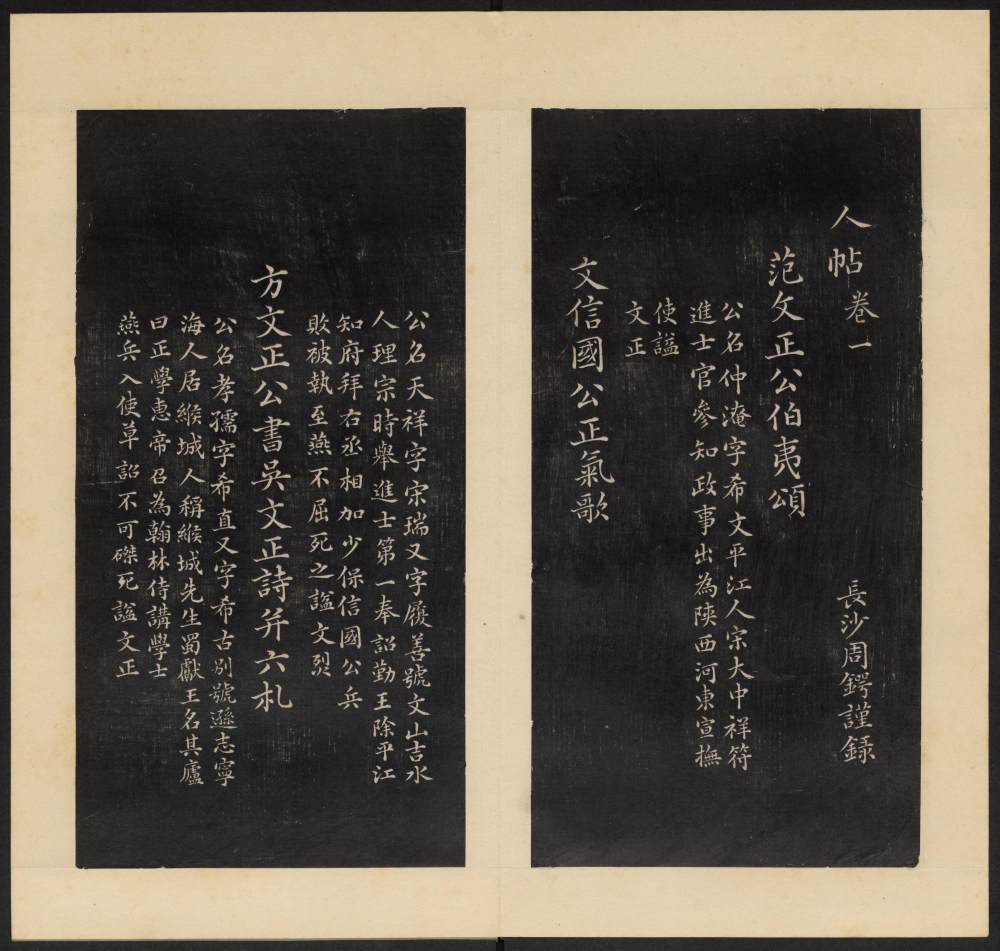 人帖卷一
長沙周鍔謹録
范文正公伯夷頌
公名仲淹字希文平江人宋大中祥符
進士官參知政事出為陝西河東宣撫
使謚
文正
文信國公正氣歌
公名天祥字宋瑞又字履善號文山吉水
人理宗時舉進士第一奉詔勤王除平江
知府拜右丞相加少保信國公兵
敗被執至燕不屈死之謚文烈
方文正公書吳文正詩并六札
公名孝孺字希直又字希古別號遜志寧
海人居緱城人稱緱城先生蜀獻王名其廬
曰正學惠帝召為翰林侍講學士
燕兵入使草詔不可磔死謚文正